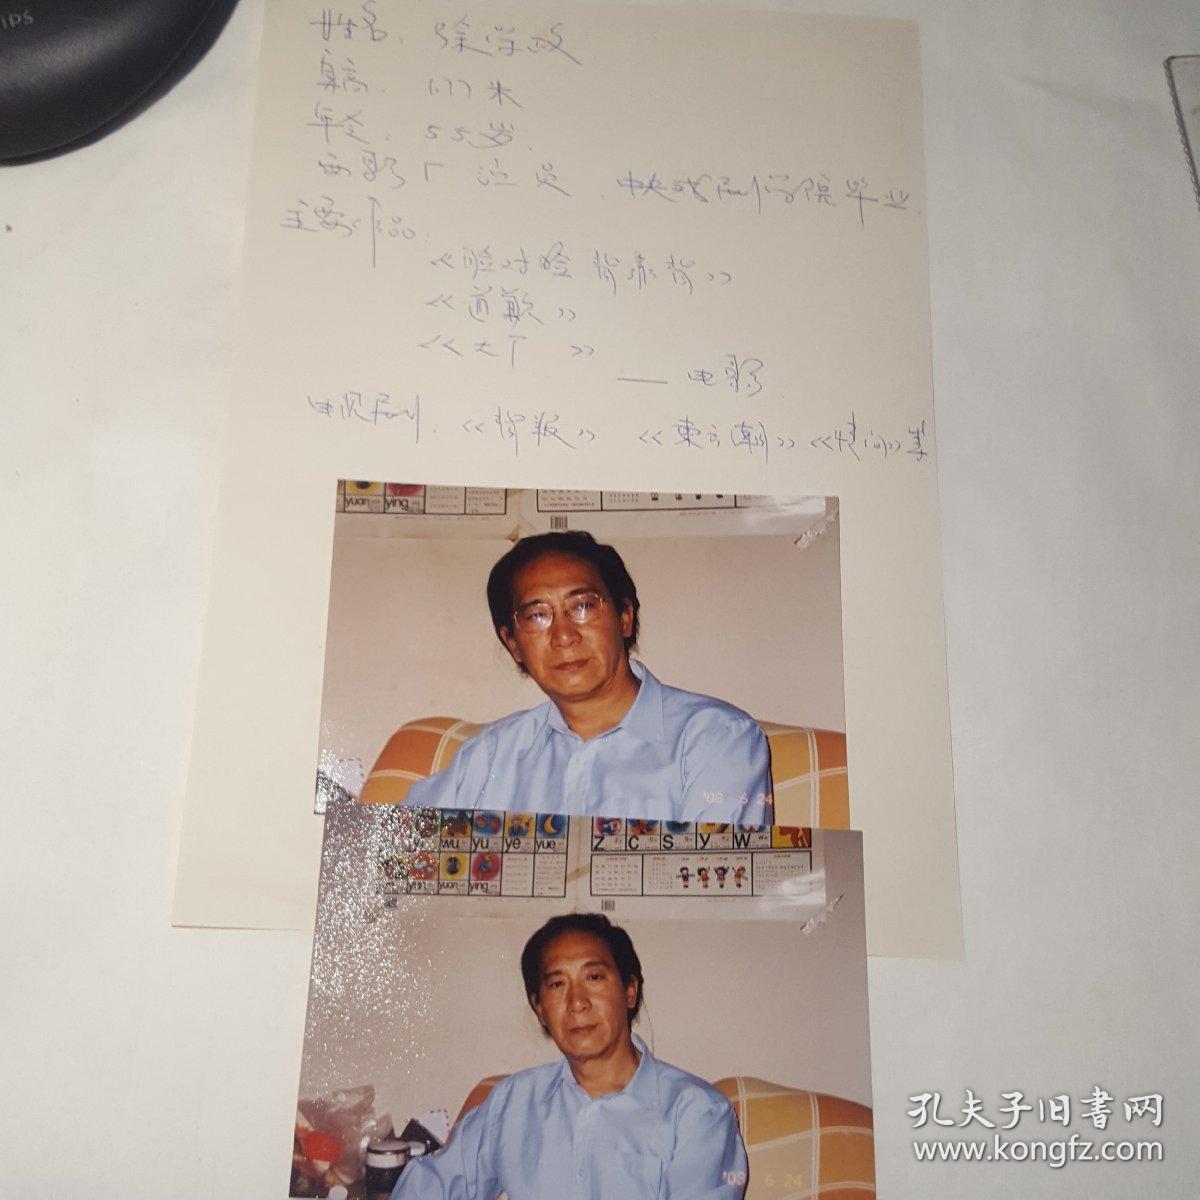 IPS
姓名: 徐学政
身高: 1.77米
年令: 55岁.
西影厂 演员. 中央戏剧学院毕业.
主要作品:
《脸对脸 背靠背》
《道歉》
《大厂》
— 电影
电视剧: 《背叛》 《东方潮》 等
yuan ying
'08 6 24
wu yu ye yue
Z C S y W
yuan ying
'08 6 24
孔夫子旧書网
www.kongfz.com